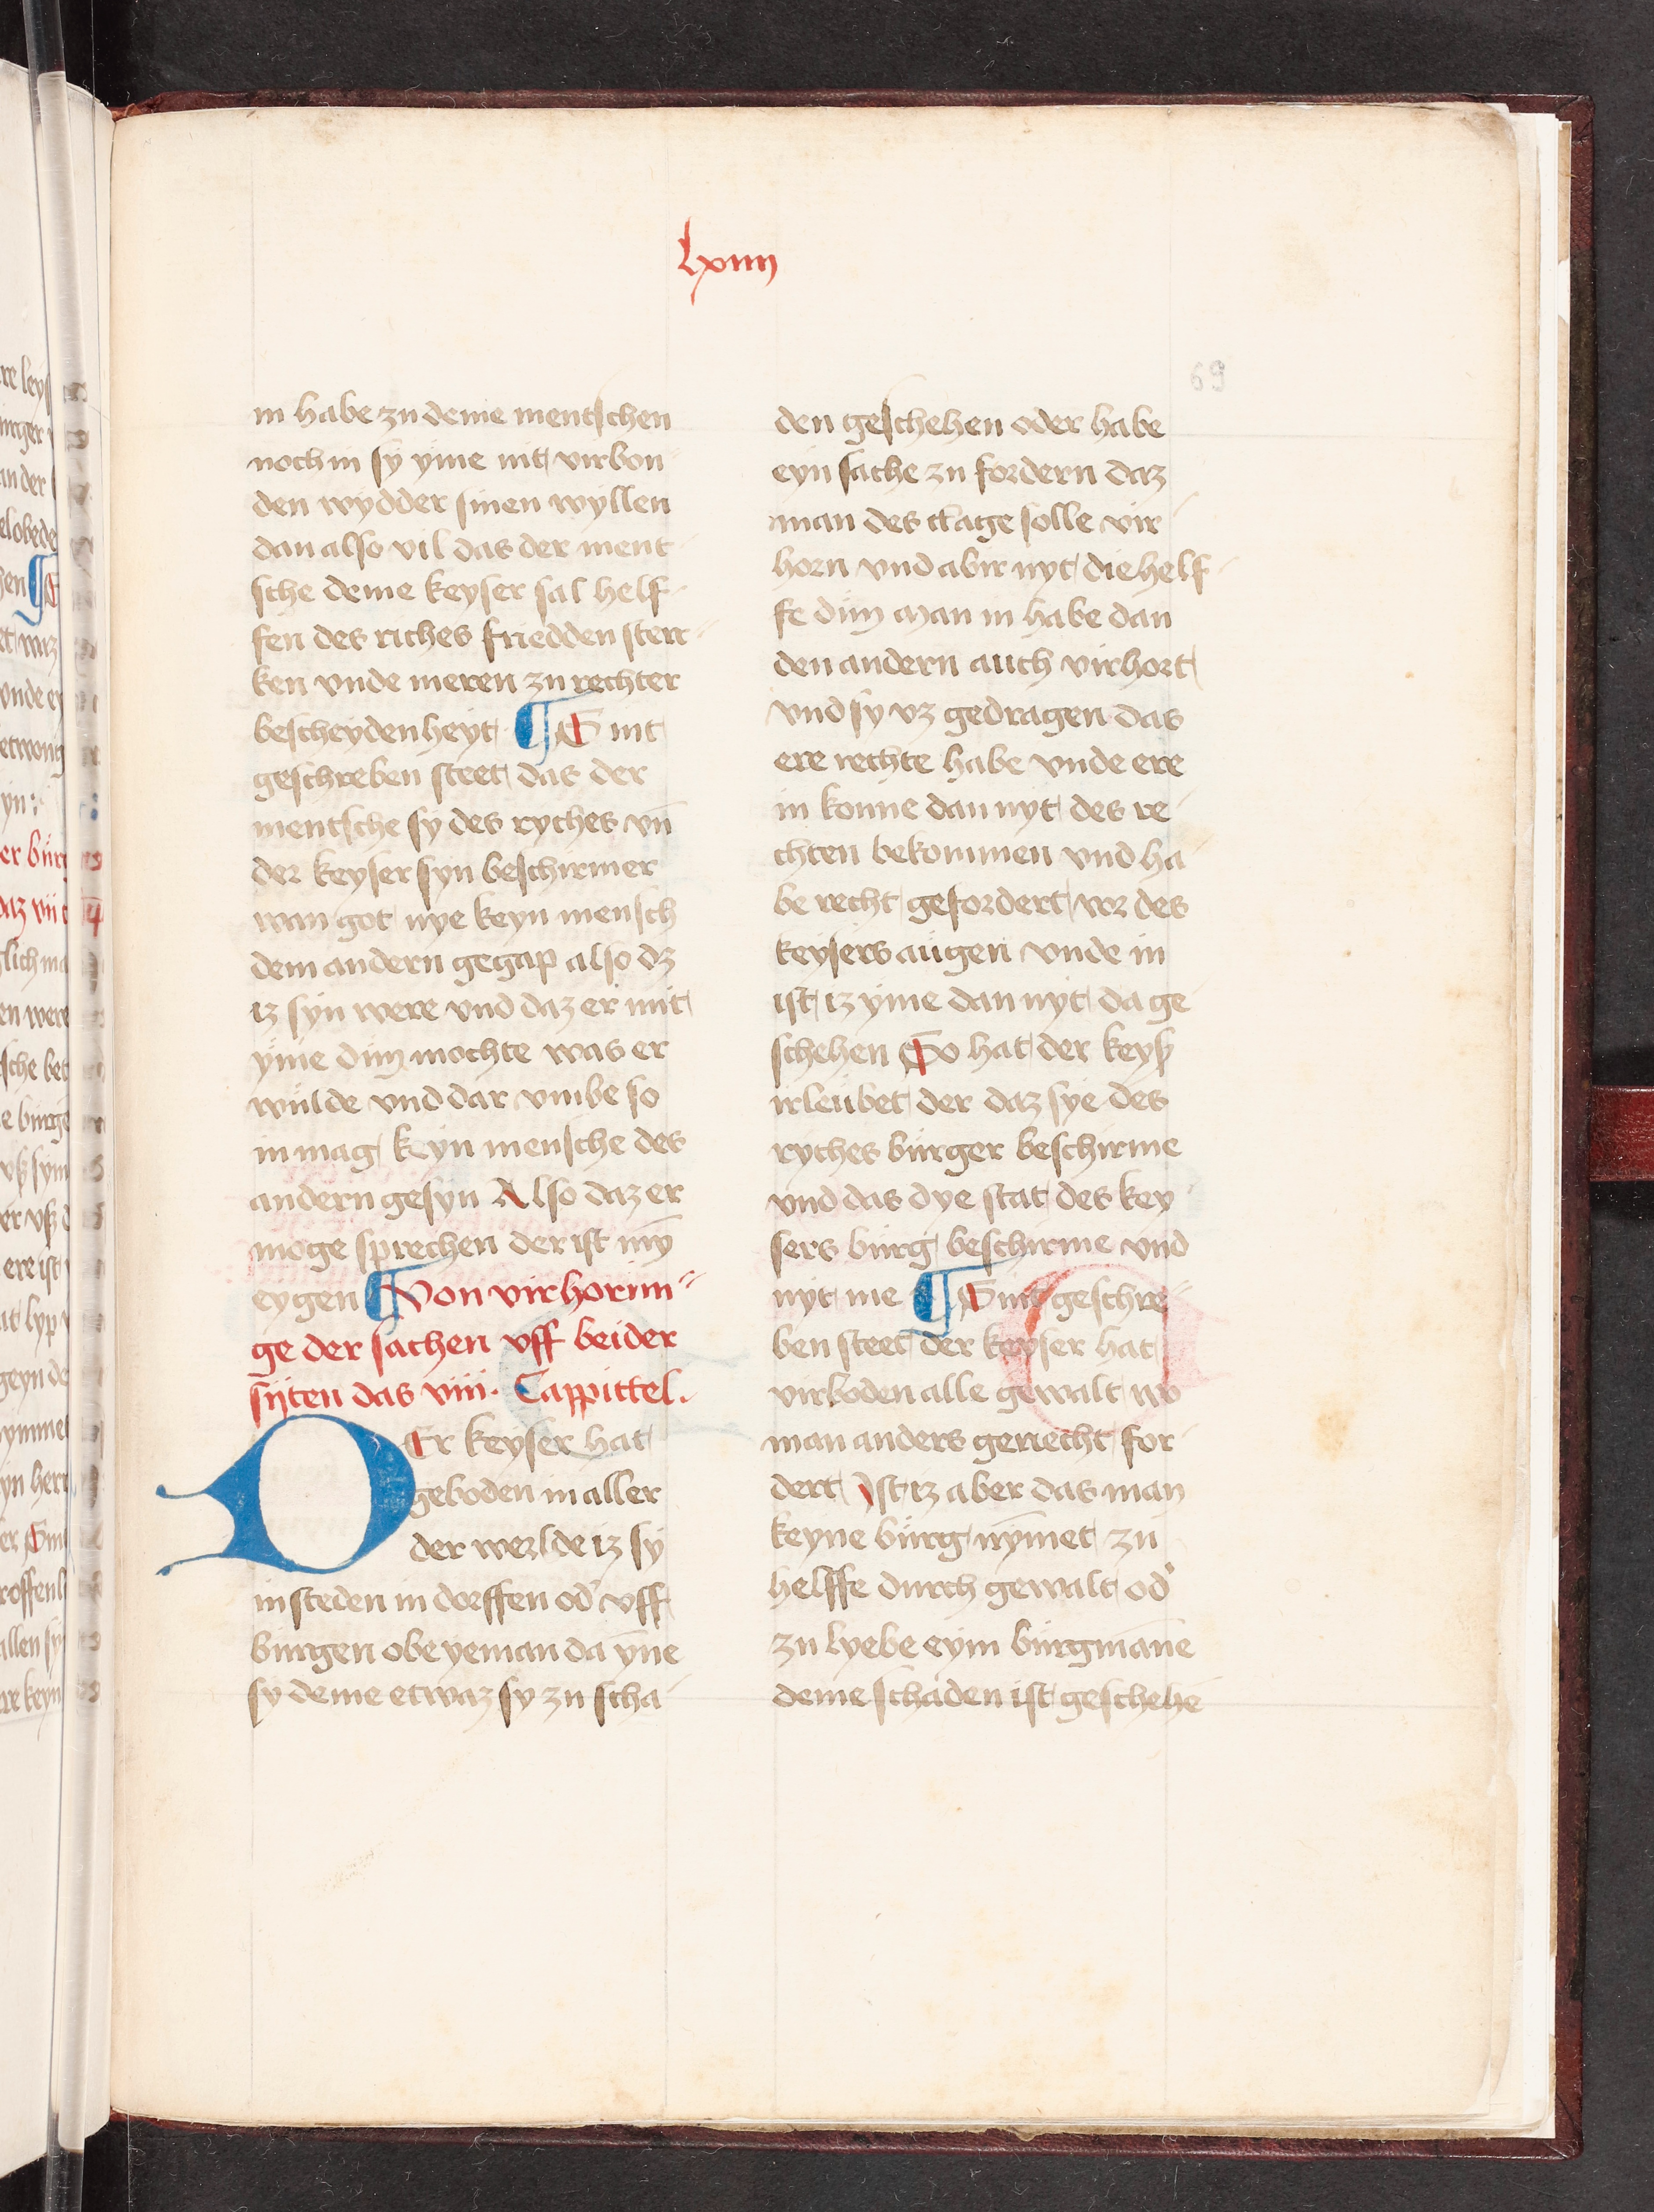 lxiiii
69
in habe zu deme mentschen
noch in sy yme nit virbon
den wydder sinen wyllen
dan also vil das der ment
sche deme keyser sal helf
fen des riches friedden sterc
ken vnde meren zu rechter
bescheydenheyt ¶ Sint
geschreben steet das der
mentsche sy des ryches vn̄
der keyser syn beschirmer
wan got nye keyn mensch
dem andern gegap also dz
iz syn were vnd daz er mit
yme dun mochte was er
wulde vnd dar vmbe so
in mag keyn mensche des
andern gesyn Also daz er
moge sprechen der ist my̅
eygen ¶ Von virhorun
ge der sachen vff beider
sijten das viii. Cappittel.
DEr keyser hat
geboden in aller
der werlde iz sy
in steden in dorffen od' vff
burgen obe yeman da y̅ne
sy deme etwaz sy zu scha
den geschehen oder habe
eyn sache zu fordern daz
man des clage solle vir
horn vnd abir nyt die helf
fe dun man in habe dan
den andern auch virhort
vnd sy vz gedragen das
ere rechte habe vnde ere
in konne dan nyt des re
chten bekommen vnd ha
be recht gefordert vor des
keysers augen vnde in
ist iz yme dan nyt da ge
schehen So hat der keyß
irleubet der daz sye des
ryches burger beschirme
vnd das dye stat des key
sers burg beschirme vnd
nyt me ¶ Sint geschre
ben steet der keyser hat
virboden alle gewalt wo
man anders geriecht for
dert Ist iz aber das man
keyne burg ny̅met zu
helffe durch gewalt od'
zu lyebe eym burgman̅e
deme schaden ist geschehe̅